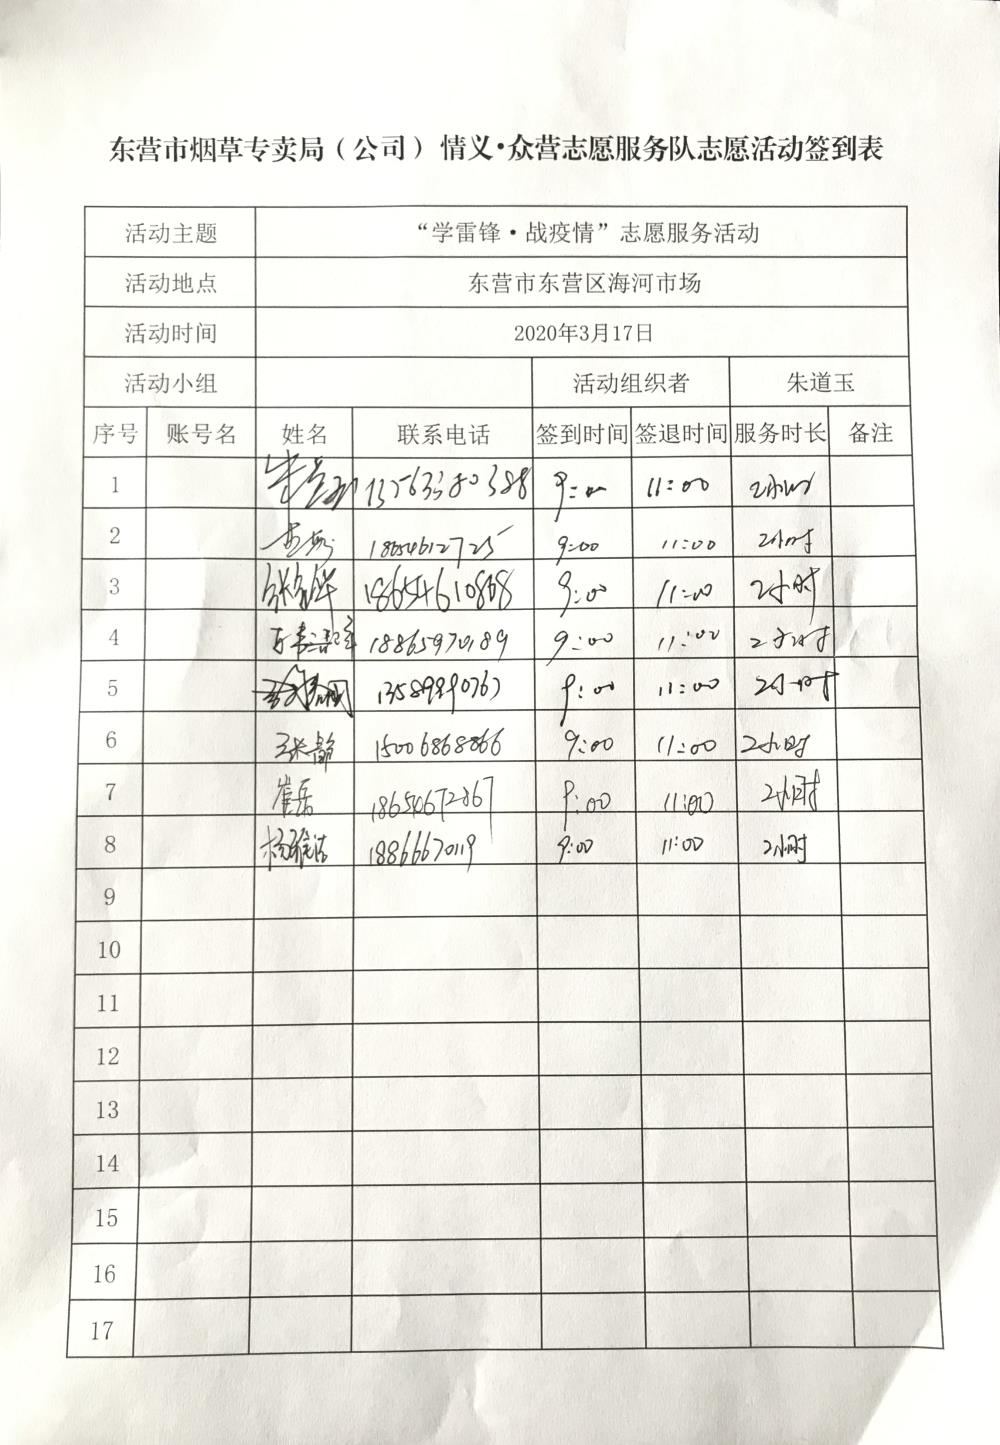 东营市烟草专卖局（公司）情义·众营志愿服务队志愿活动签到表
活动主题 “学雷锋·战疫情”志愿服务活动
活动地点 东营市东营区海河市场
活动时间 2020年3月17日
活动小组 活动组织者 朱道玉
序号 账号名 姓名 联系电话 签到时间 签退时间 服务时长 备注
1 13563380388 9:00 11:00 2小时
2 18654612725 9:00 11:00 2小时
3 18654610868 9:00 11:00 2小时
4 18865970189 9:00 11:00 2小时
5 13589990763 9:00 11:00 2小时
6 张静 15006868866 9:00 11:00 2小时
7 崔岳 18654672867 9:00 11:00 2小时
8 杨雅洁 18866670119 9:00 11:00 2小时
9
10
11
12
13
14
15
16
17